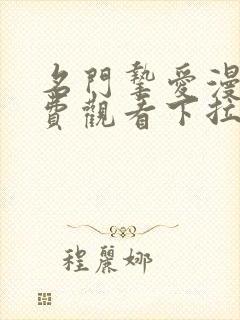 名門摯愛漫
費觀看下拉
程麗娜